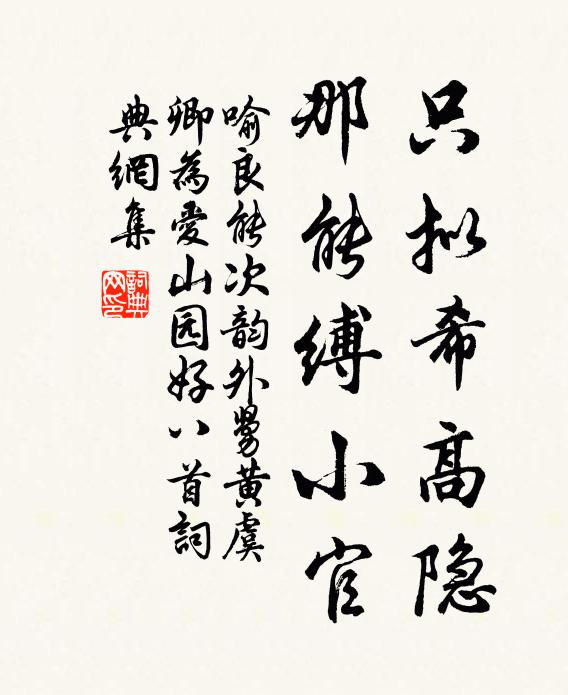 只拟希高隐
那能缚小官
喻良能次韵外舅黄虞
卿為愛山园好八首詞
典網集
詞典網印